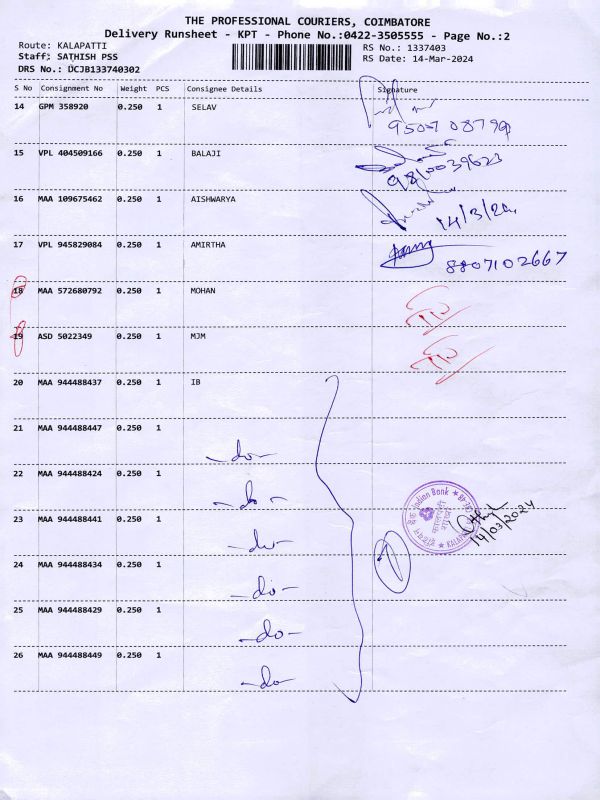 THE PROFESSIONAL COURIERS, COIMBATORE
Delivery Runsheet - KPT - Phone No.:0422-3505555 - Page No.:2
Route: KALAPATTI
Staff: SATHISH PSS
DRS No.: DCJB133740302
RS No.: 1337403
RS Date: 14-Mar-2024
S No Consignment No Weight PCS Consignee Details Signature
14 GPM 358920 0.250 1 SELAV
95007 08799
15 VPL 404509166 0.250 1 BALAJI
9810039623
16 MAA 109675462 0.250 1 AISHWARYA
14/3/24
17 VPL 945829084 0.250 1 AMIRTHA
8807102667
18 MAA 572680792 0.250 1 MOHAN
19 ASD 5022349 0.250 1 MJM
20 MAA 944488437 0.250 1 IB
21 MAA 944488447 0.250 1 -do-
22 MAA 944488424 0.250 1 -do-
23 MAA 944488441 0.250 1 -do-
24 MAA 944488434 0.250 1 -do-
25 MAA 944488429 0.250 1 -do-
26 MAA 944488449 0.250 1 -do-
Indian Bank
14/03/2024